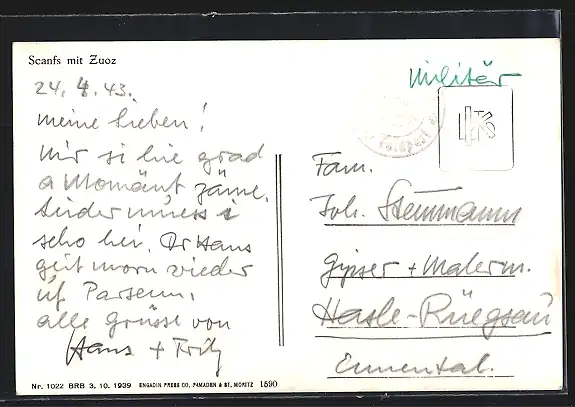 Scanfs mit Zuoz
24. 4. 43.
Militär
Feldpost
meine Lieben!
Mir si hie grad
a Momänt zäme.
Leider muess i
scho hei. Dr Hans
geit morn wieder
uf Parsenn.
alle Grüsse von
Hans + Fritz
Fam.
Joh. Stemmann
Gipser + Malerm.
Hasle-Rüegsau
Emmental.
Nr. 1022 BRB 3. 10. 1939 ENGADIN PRESS CO. SAMADEN & ST. MORITZ 1590